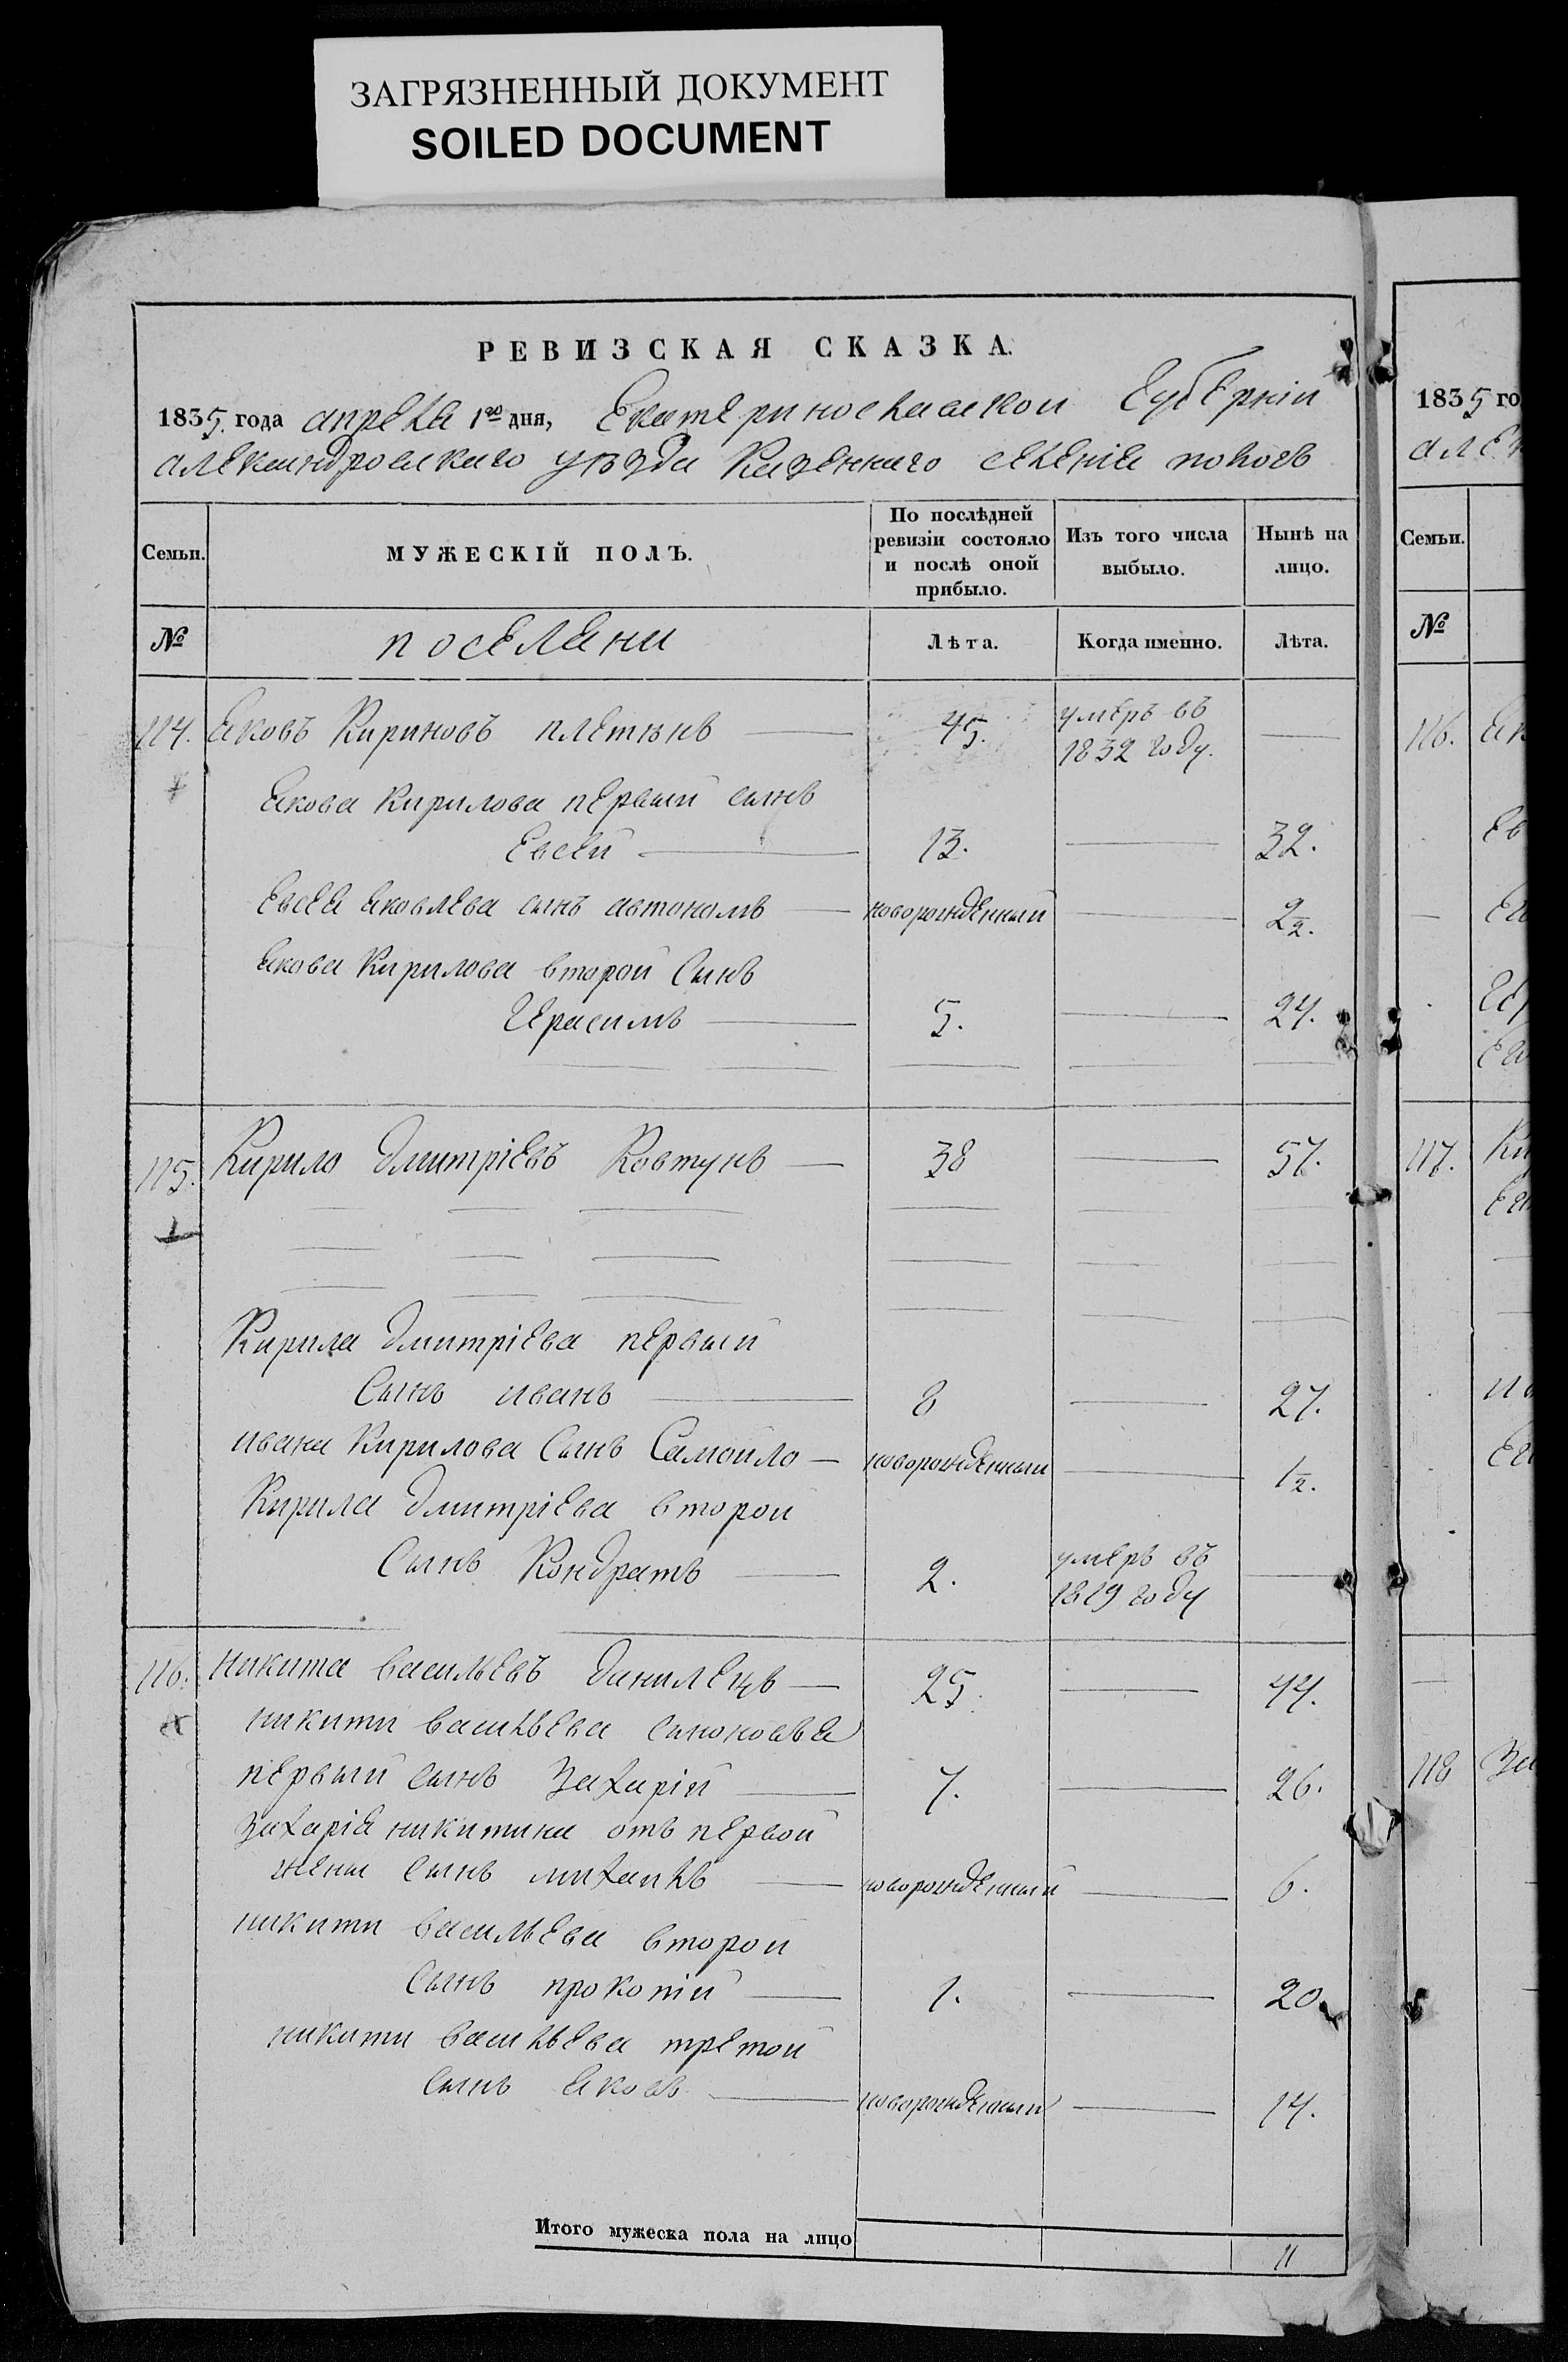 ЗАГРЯЗНЕННЫЙ ДОКУМЕНТ
SOILED DOCUMENT
РЕВИЗСКАЯ СКАЗКА.
1835. года апреля 1го дня, Екатеринославской Губерніи
александровскаго уѣзда Казеннаго селенія пологъ
Семьи.
МУЖЕСКІЙ ПОЛЪ.
По послѣдней ревизіи состояло и послѣ оной прибыло.
Изъ того числа выбыло.
Нынѣ на лицо.
№
поселяни
Лѣта.
Когда именно.
Лѣта.
114. Яковъ Кириловъ плетѣнь 45. умеръ въ 1832 году.
Якова Кирилова первый сынъ
Евсей 13. 32.
Евсея яковлева сынъ автономъ новорожденный 2½.
Якова Кирилова второй Сынъ
Герасимъ 5. 24.
115. Кирило дмитріевъ Ковтунъ 38 57.
Кирила дмитріева первый
Сынъ иванъ 8 27.
ивана Кирилова Сынъ Самойло новорожденный ½.
Кирила дмитріева второй
Сынъ Кондратъ 2. умеръ въ 1819 году
116. никита васильевъ данилецъ 25. 44.
никити васильева сыновья
первый сынъ Захарій 7. 26.
Захарія никитина отъ первой
жены сынъ михаилъ новорожденный 6.
никити васильева второй
Сынъ прокопій 1. 20.
никити васильева третой
сынъ яковъ новорожденный 14.
Итого мужеска пола на лицо 11
1835 го
Семьи.
№
116.
117.
118